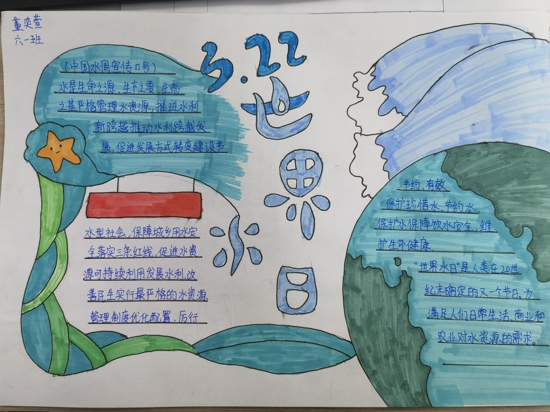 董奕萱
六一班
3.22
世界水日
《中国水周宣传口号》
水是生命之源、生产之要、生态
之基严格管理水资源、推进水利
新跨越推动水利跨越发
展、促进发展方式转变建设节
水型社会、保障城乡用水定
全落定三条红线、促进水资
源可持续利用发展水利改
善民生实行最严格的水资源
管理制度优化配置、厉行
节约、有效
保护珍惜水、节约水
保护水保障饮水安全、维
护生命健康
"世界水日"是人类在20世
纪末确定的又一个节日。为
满足人们日常生活、商业和
农业对水资源的需求。